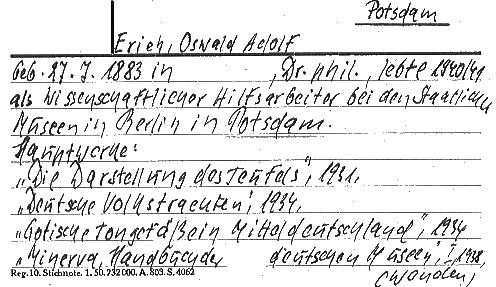 Potsdam
Erich, Oswald Adolf
geb. 27. 7. 1883 in , Dr. phil., lebte 1940/41
als wissenschaftlicher Hilfsarbeiter bei den Staatlichen
Museen in Berlin in Potsdam.
Hauptwerke:
„Die Darstellung des Teufels", 1931.
„Deutsche Volkstrachten", 1934.
„Gotische Tongefäße in Mitteldeutschland", 1934
„Minerva, Handbücher deutschen Museen", I 1938,
Reg. 10. Stichnote. 1. 50. 232 000. A. 803. S. 4062